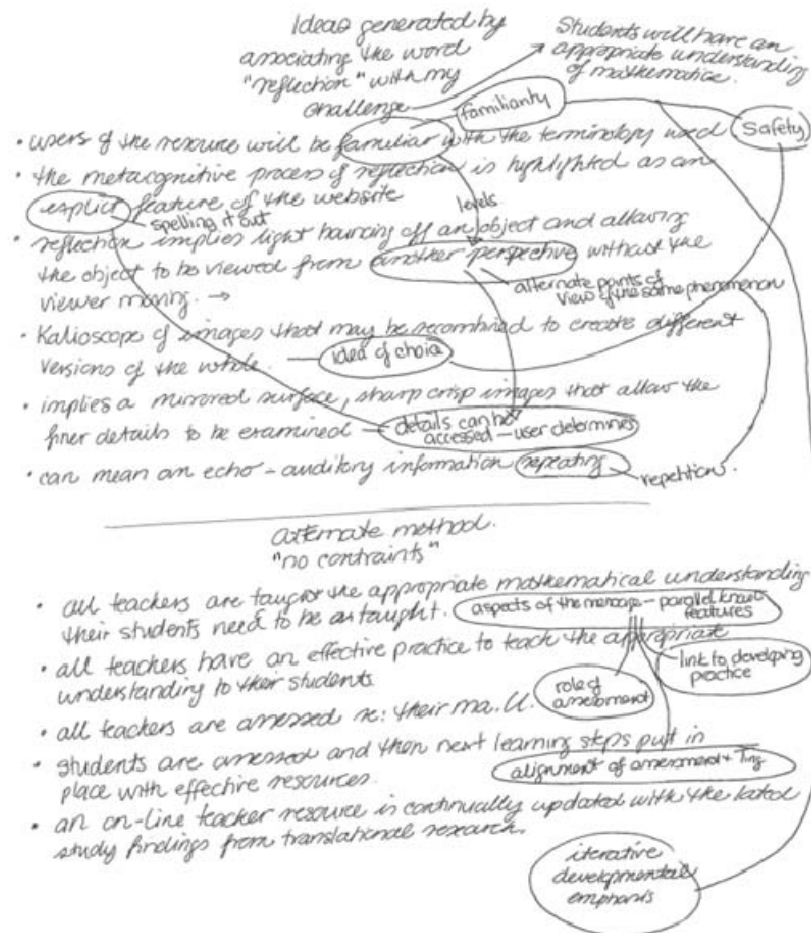 Ideas generated by
associating the word
"reflection" with my
challenge
Students will have an
appropriate understanding
of mathematics.
familiarity
Safety
• users of the resource will be familiar with the terminology used
• the metacognitive process of reflection is highlighted as an
explicit feature of the website
spelling it out
levels.
• reflection implies light bouncing off an object and allowing
the object to be viewed from another perspective without the
viewer moving. →
alternate points of
view of the same phenomenon
• Kalioscope of images that may be recombined to create different
versions of the whole. — idea of choice
• implies a mirrored surface, sharp crisp images that allow the
finer details to be examined — details can be
accessed — user determines
• can mean an echo - auditory information repeating
repetition.
alternate method.
"no contraints"
• all teachers are taught the appropriate mathematical understanding
their students need to be taught.
aspects of the message - parallel
features
• all teachers have an effective practice to teach the appropriate
understanding to their students
link to developing
practice
role of
assessment
• all teachers are assessed re: their ma. U.
• students are assessed and then next learning steps put in
place with effective resources.
alignment of assessment + Tng
• an on-line teacher resource is continually updated with the latest
study findings from translational research.
iterative
developmental
emphasis